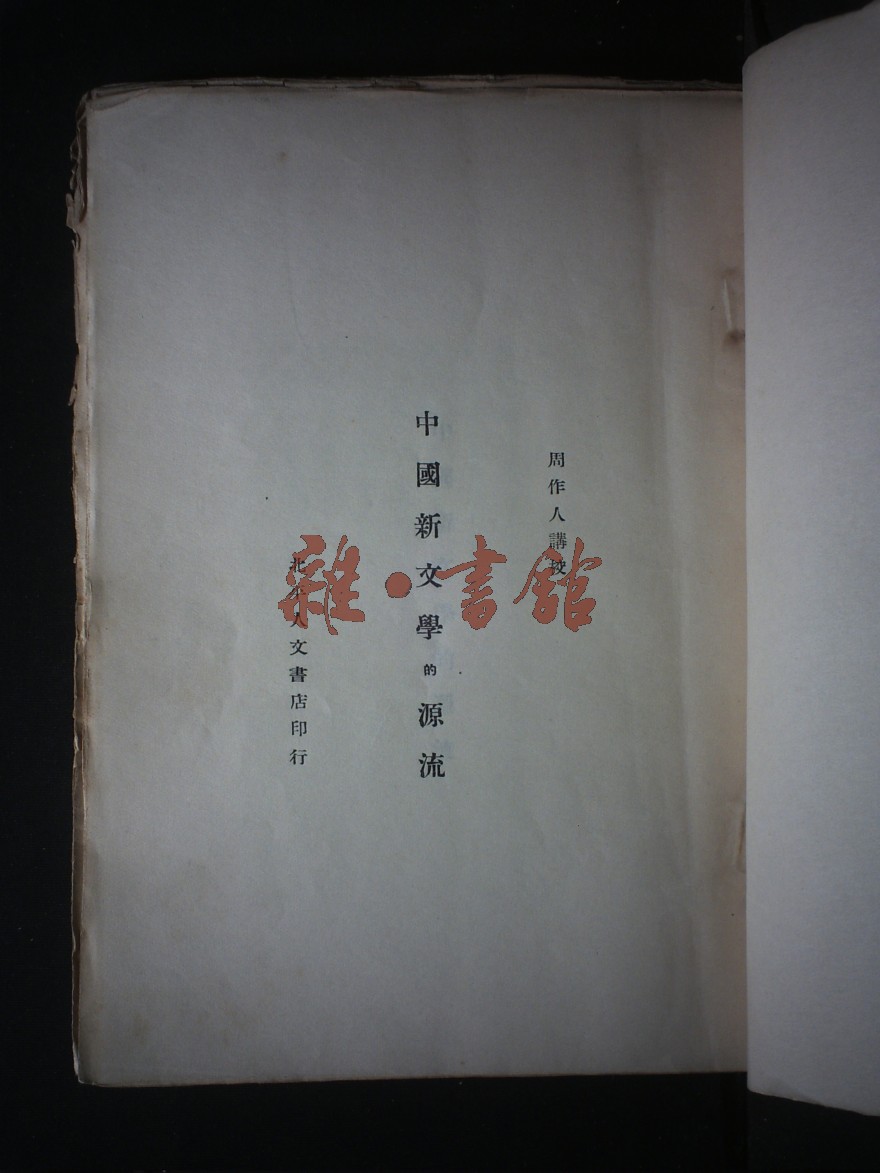 周作人講授
中國新文學的源流
北平人文書店印行
雜·書館